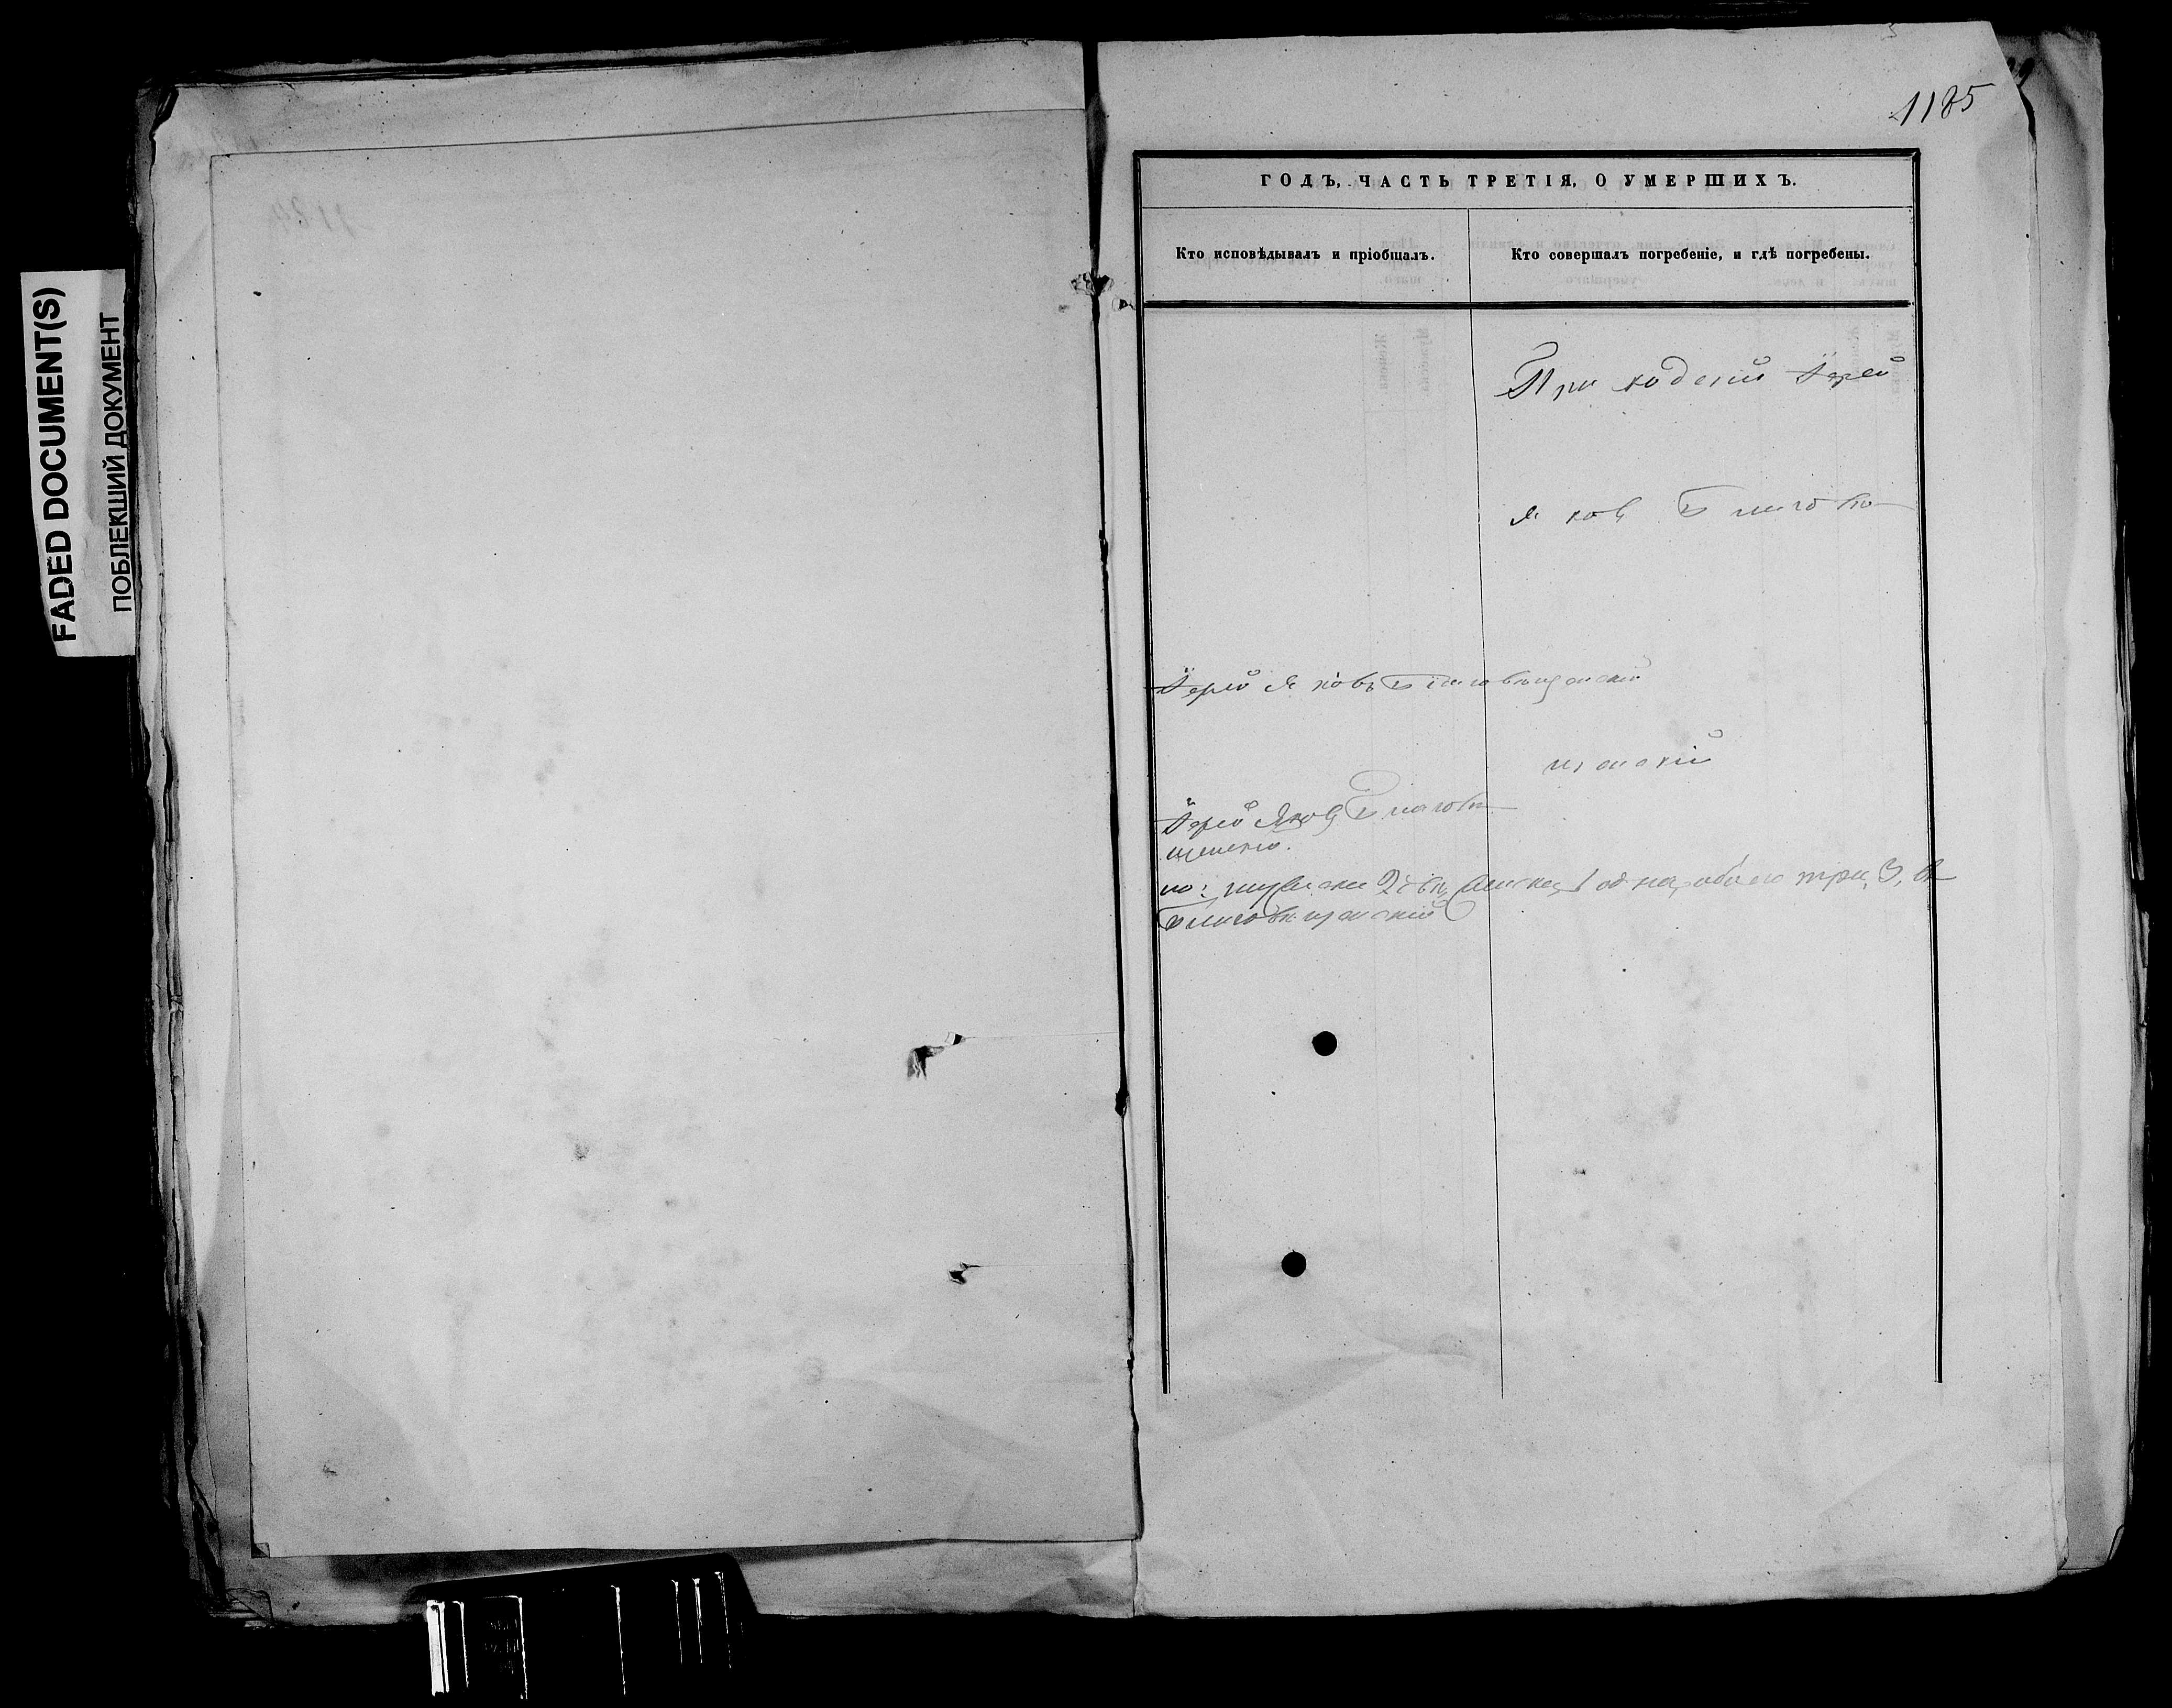 FADED DOCUMENT(S)
ПОБЛЕКШИЙ ДОКУМЕНТ
1185
ГОДЪ, ЧАСТЬ ТРЕТІЯ, О УМЕРШИХЪ.
Кто исповѣдывалъ и пріобщалъ.
Кто совершалъ погребеніе, и гдѣ погребены.
Приходскій Іерей
Яковъ Благовѣ-
Іерей Яковъ Благовѣщенскій
щенскій
Іерей Яковъ Благовѣ-
щенскій.
2 1 одна, обоего три, 3,
Благовѣщенскій